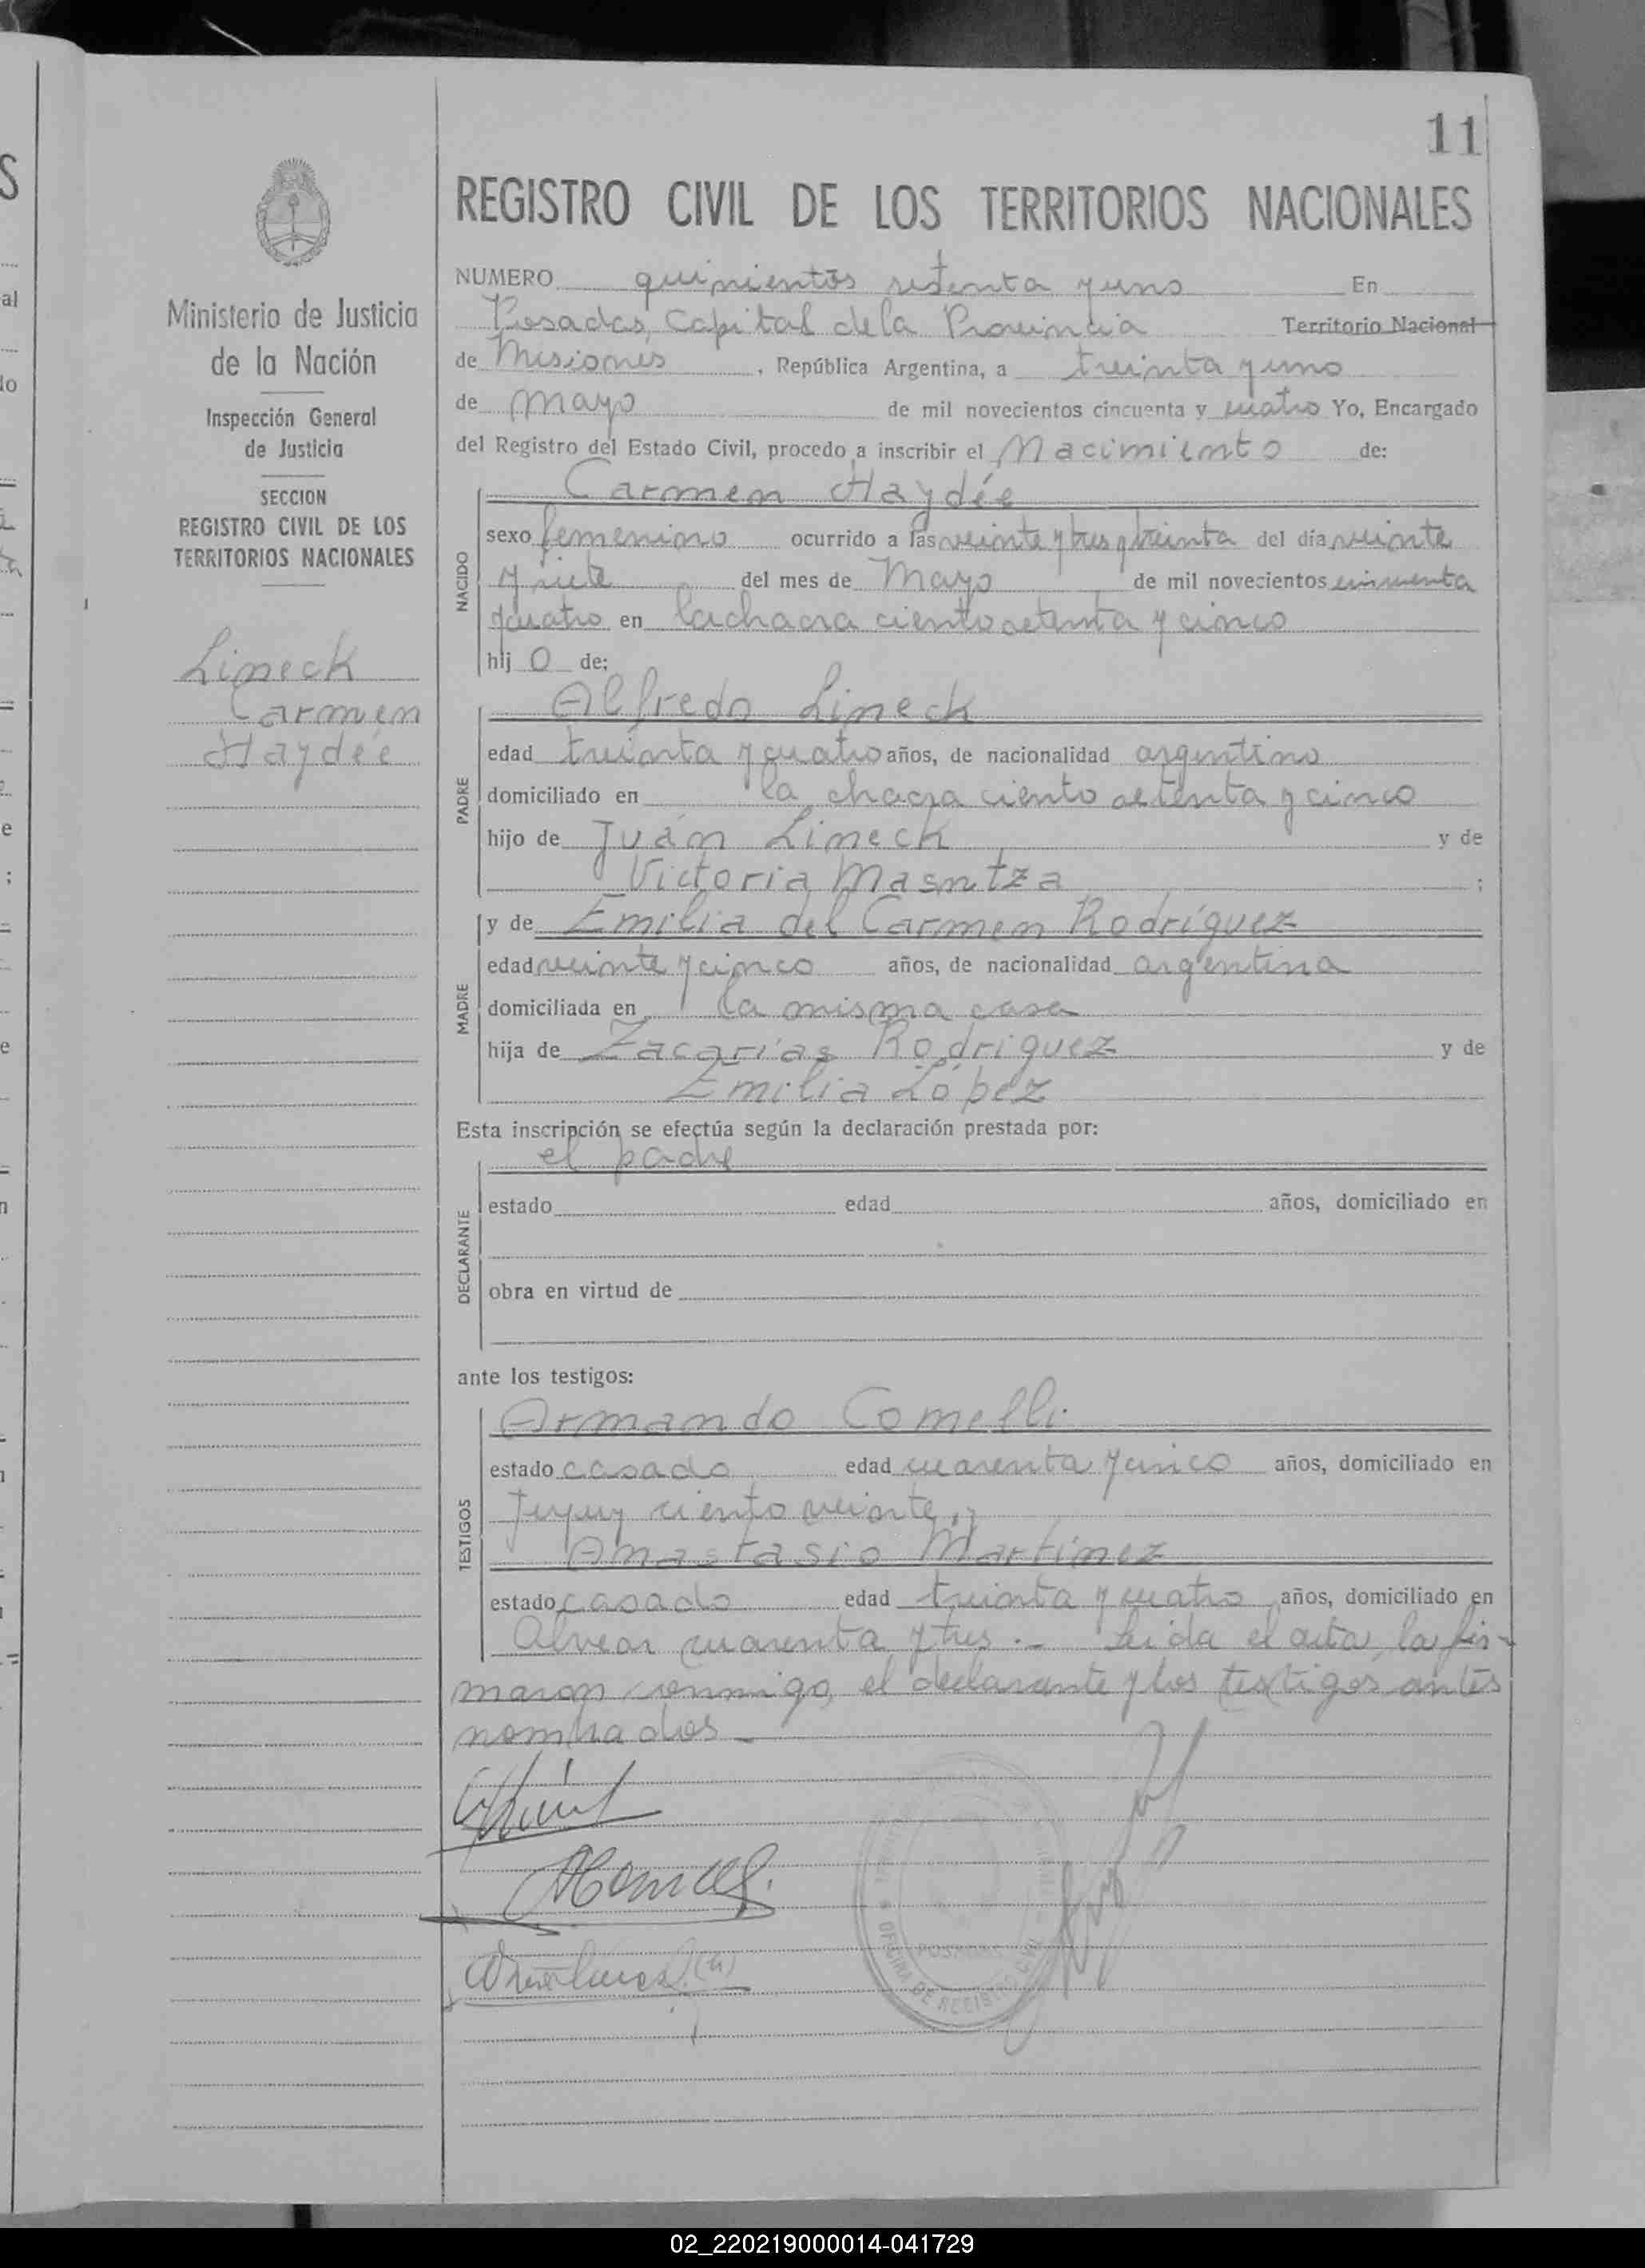 11
REGISTRO CIVIL DE LOS TERRITORIOS NACIONALES
Ministerio de Justicia
de la Nación
Inspección General
de Justicia
SECCION
REGISTRO CIVIL DE LOS
TERRITORIOS NACIONALES
Lineck
Carmen
Haydée
NUMERO quinientos setenta y uno En
Posadas, Capital de la Provincia Territorio Nacional
de Misiones, República Argentina, a treinta y uno
de Mayo de mil novecientos cincuenta y cuatro Yo, Encargado
del Registro del Estado Civil, procedo a inscribir el Nacimiento de:
Carmen Haydée
NACIDO
sexo femenino ocurrido a las veinte y tres y treinta del día veinte
y siete del mes de Mayo de mil novecientos cincuenta
y cuatro en la chacra ciento setenta y cinco
hij o de:
Alfredo Lineck
PADRE
edad treinta y cuatro años, de nacionalidad argentino
domiciliado en la chacra ciento setenta y cinco
hijo de Juán Lineck y de
Victoria ;
y de Emilia del Carmen Rodríguez
MADRE
edad veinte y cinco años, de nacionalidad argentina
domiciliada en la misma casa
hija de Zacarías Rodríguez y de
Emilia López
Esta inscripción se efectúa según la declaración prestada por:
el padre
DECLARANTE
estado edad años, domiciliado en
obra en virtud de
ante los testigos:
Armando Comelli
TESTIGOS
estado casado edad cuarenta y cinco años, domiciliado en
Jujuy ciento veinte, y
Anastasio Martínez
estado casado edad treinta y cuatro años, domiciliado en
Alvear cuarenta y tres.- Leida el acta, la fir-
maron conmigo, el declarante y los testigos antes
nombrados.-
POSADAS
OFICINA DE REGISTRO CIVIL
02_220219000014-041729